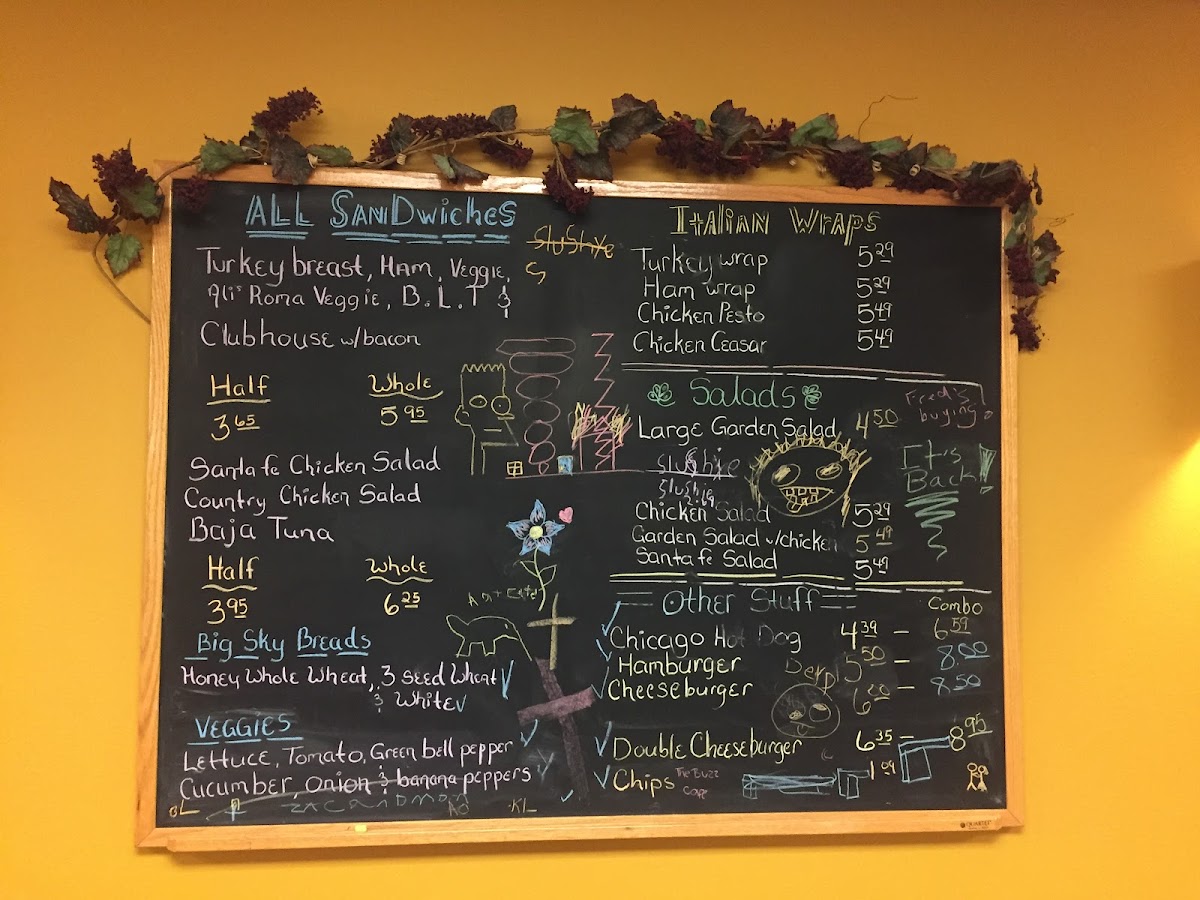 ALL SANDWICHES
Turkey breast, Ham, Veggie,
Ali's Roma Veggie, B.L.T &
Clubhouse w/bacon
Half Whole
3.65 5.95
Santa fe Chicken Salad
Country Chicken Salad
Baja Tuna
Half Whole
3.95 6.25
Big Sky Breads
Honey Whole Wheat, 3 seed Wheat
& White
VEGGIES
Lettuce, Tomato, Green bell pepper
Cucumber, onion & banana peppers
BL
KL
Slushye
S
Italian Wraps
Turkey wrap 5.29
Ham wrap 5.29
Chicken Pesto 5.49
Chicken Ceasar 5.49
Salads
Fred's
buying
Large Garden Salad 4.50
It's
Back!
Slushie
Slushie
Chicken Salad 5.29
Garden Salad w/chicken 5.49
Santa fe Salad 5.49
Other Stuff Combo
Chicago Hot Dog 4.39 – 6.59
Hamburger 5.50 – 8.00
Derp
Cheeseburger – 8.50
Double Cheeseburger 6.35 – 8.95
Chips 1.09
The Buzz
Cafe